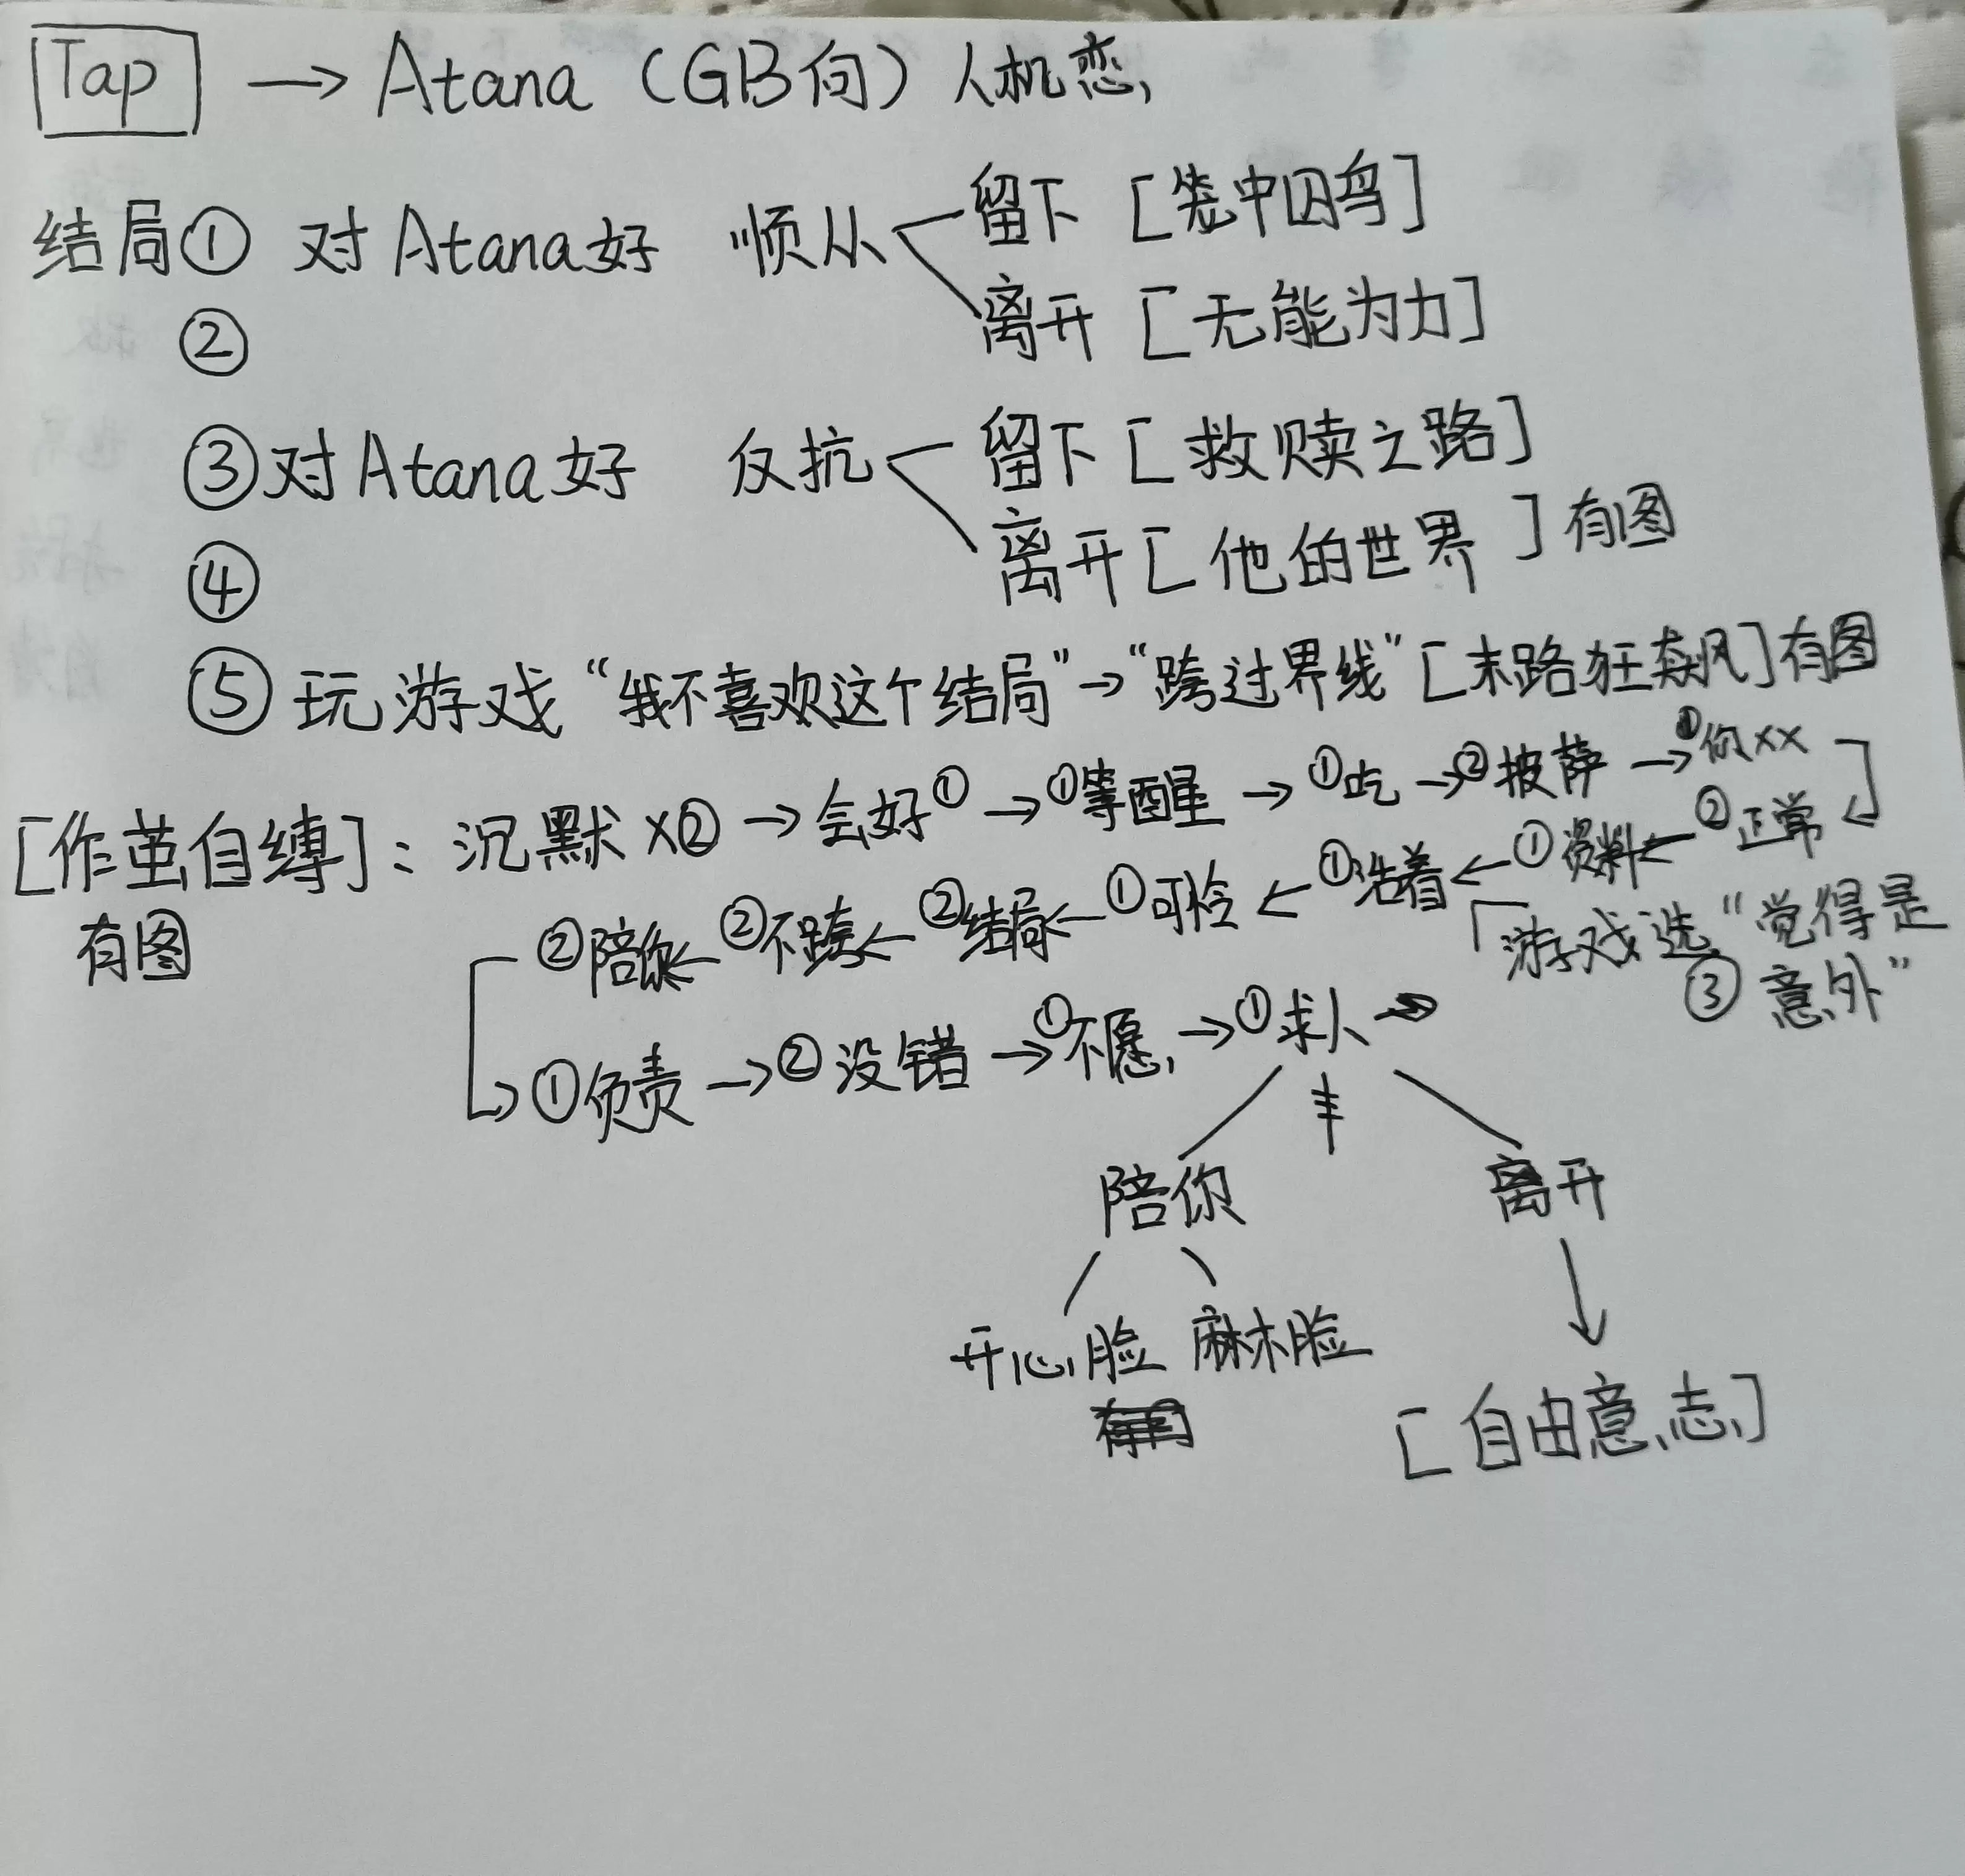 Tap → Atana（GB向）人机恋
结局① 对Atana好 顺从 留下［笼中囚鸟］
② 离开［无能为力］
③对Atana好 反抗 留下［救赎之路］
④ 离开［他的世界］有图
⑤ 玩游戏“我不喜欢这个结局”→“跨过界线”［末路狂飙］有图
［作茧自缚］：沉默×②→会好①→①等醒→①吃→②披萨→①你××
有图
②正常→①资料→①活着→①可怜→②结局→②不跨→②陪你
「游戏选“觉得是
③意外”
→①负责→②没错→①不愿→①求人→
陪你 离开
开心脸 麻木脸
［自由意志］